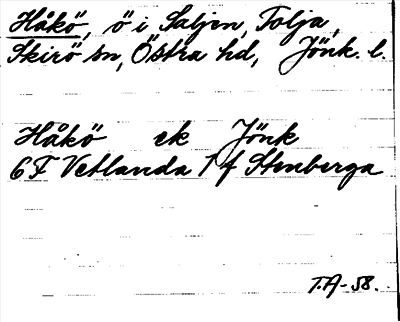 Håkö, ö i Saljen, Tolja,
Skirö sn, Östra hd, Jönk. l.
Håkö ek Jönk
6F Vetlanda 1f Stenberga
T.A-58.